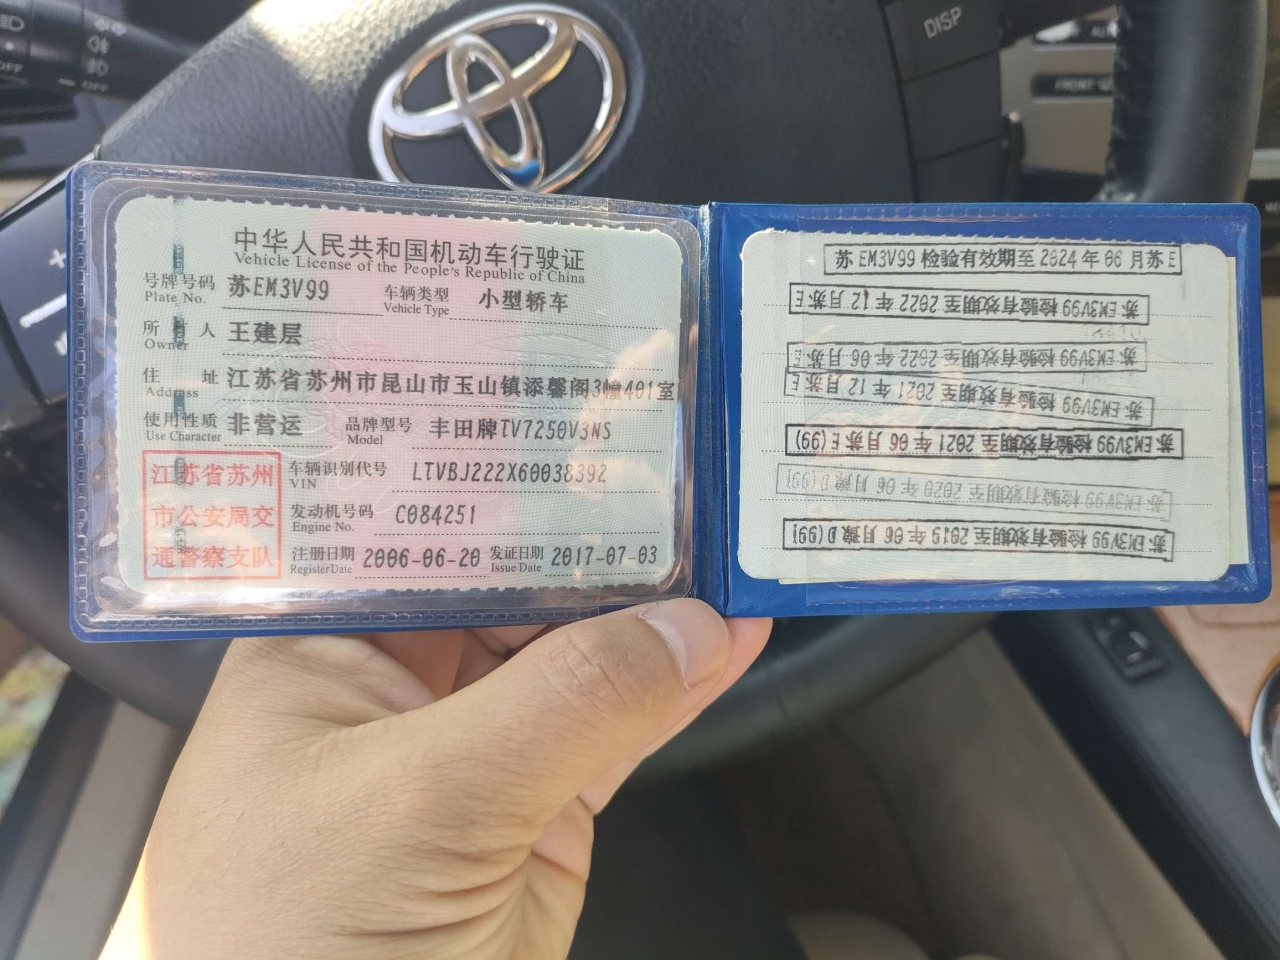 DISP
OFF
OFF
FRONT
中华人民共和国机动车行驶证
Vehicle License of the People's Republic of China
号牌号码 苏EM3V99 车辆类型 小型轿车
Plate No. Vehicle Type
所有人 王建层
Owner
住址 江苏省苏州市昆山市玉山镇添馨阁3幢401室
Address
使用性质 非营运 品牌型号 丰田牌TV7250V3NS
Use Character Model
江苏省苏州
市公安局交
通警察支队
车辆识别代号 LTVBJ222X60038392
VIN
发动机号码 C084251
Engine No.
注册日期 2006-06-20 发证日期 2017-07-03
Register Date Issue Date
苏EM3V99 检验有效期至 2024 年 06 月苏 E
苏 EM3V99 检验有效期至 2022 年 12 月苏 E
苏 EM3V99 检验有效期至 2022 年 06 月苏 E
苏 EM3V99 检验有效期至 2021 年 12 月苏 E
苏 EM3V99 检验有效期至 2021 年 06 月苏 E (99)
苏 EM3V99 检验有效期至 2020 年 06 月豫 D (99)
苏 EM3V99 检验有效期至 2019 年 06 月豫 D (99)